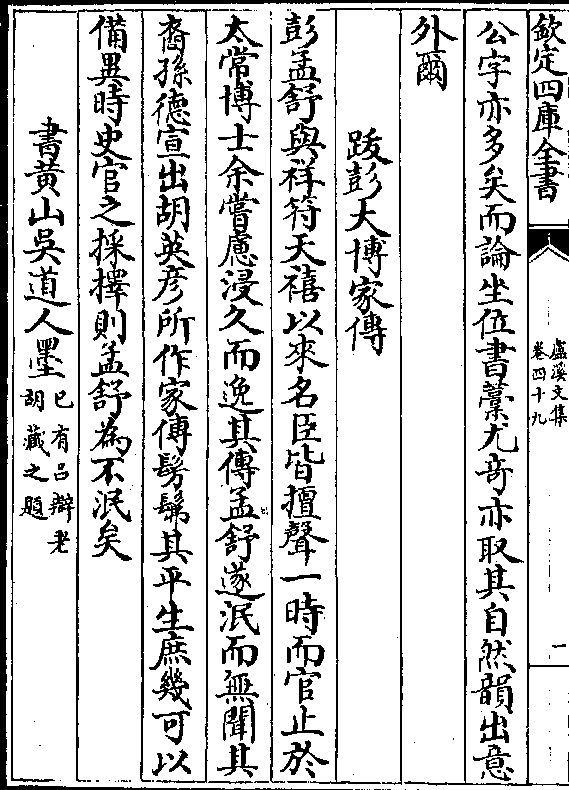 欽定四庫全書
盧溪文集
卷四十九
一
公字亦多矣而論坐位書藁尤奇亦取其自然韻出意
外爾
跋彭大博家傳
彭孟舒與祥符天禧以來名臣皆擅聲一時而官止於
太常博士余嘗慮浸久而逸其傳孟舒遂泯而無聞其
裔孫德宣出胡英彦所作家傳髣髴其平生庶幾可以
備異時史官之採擇則孟舒為不泯矣
書黄山吳道人墨
已有吕辯老
胡藏之題